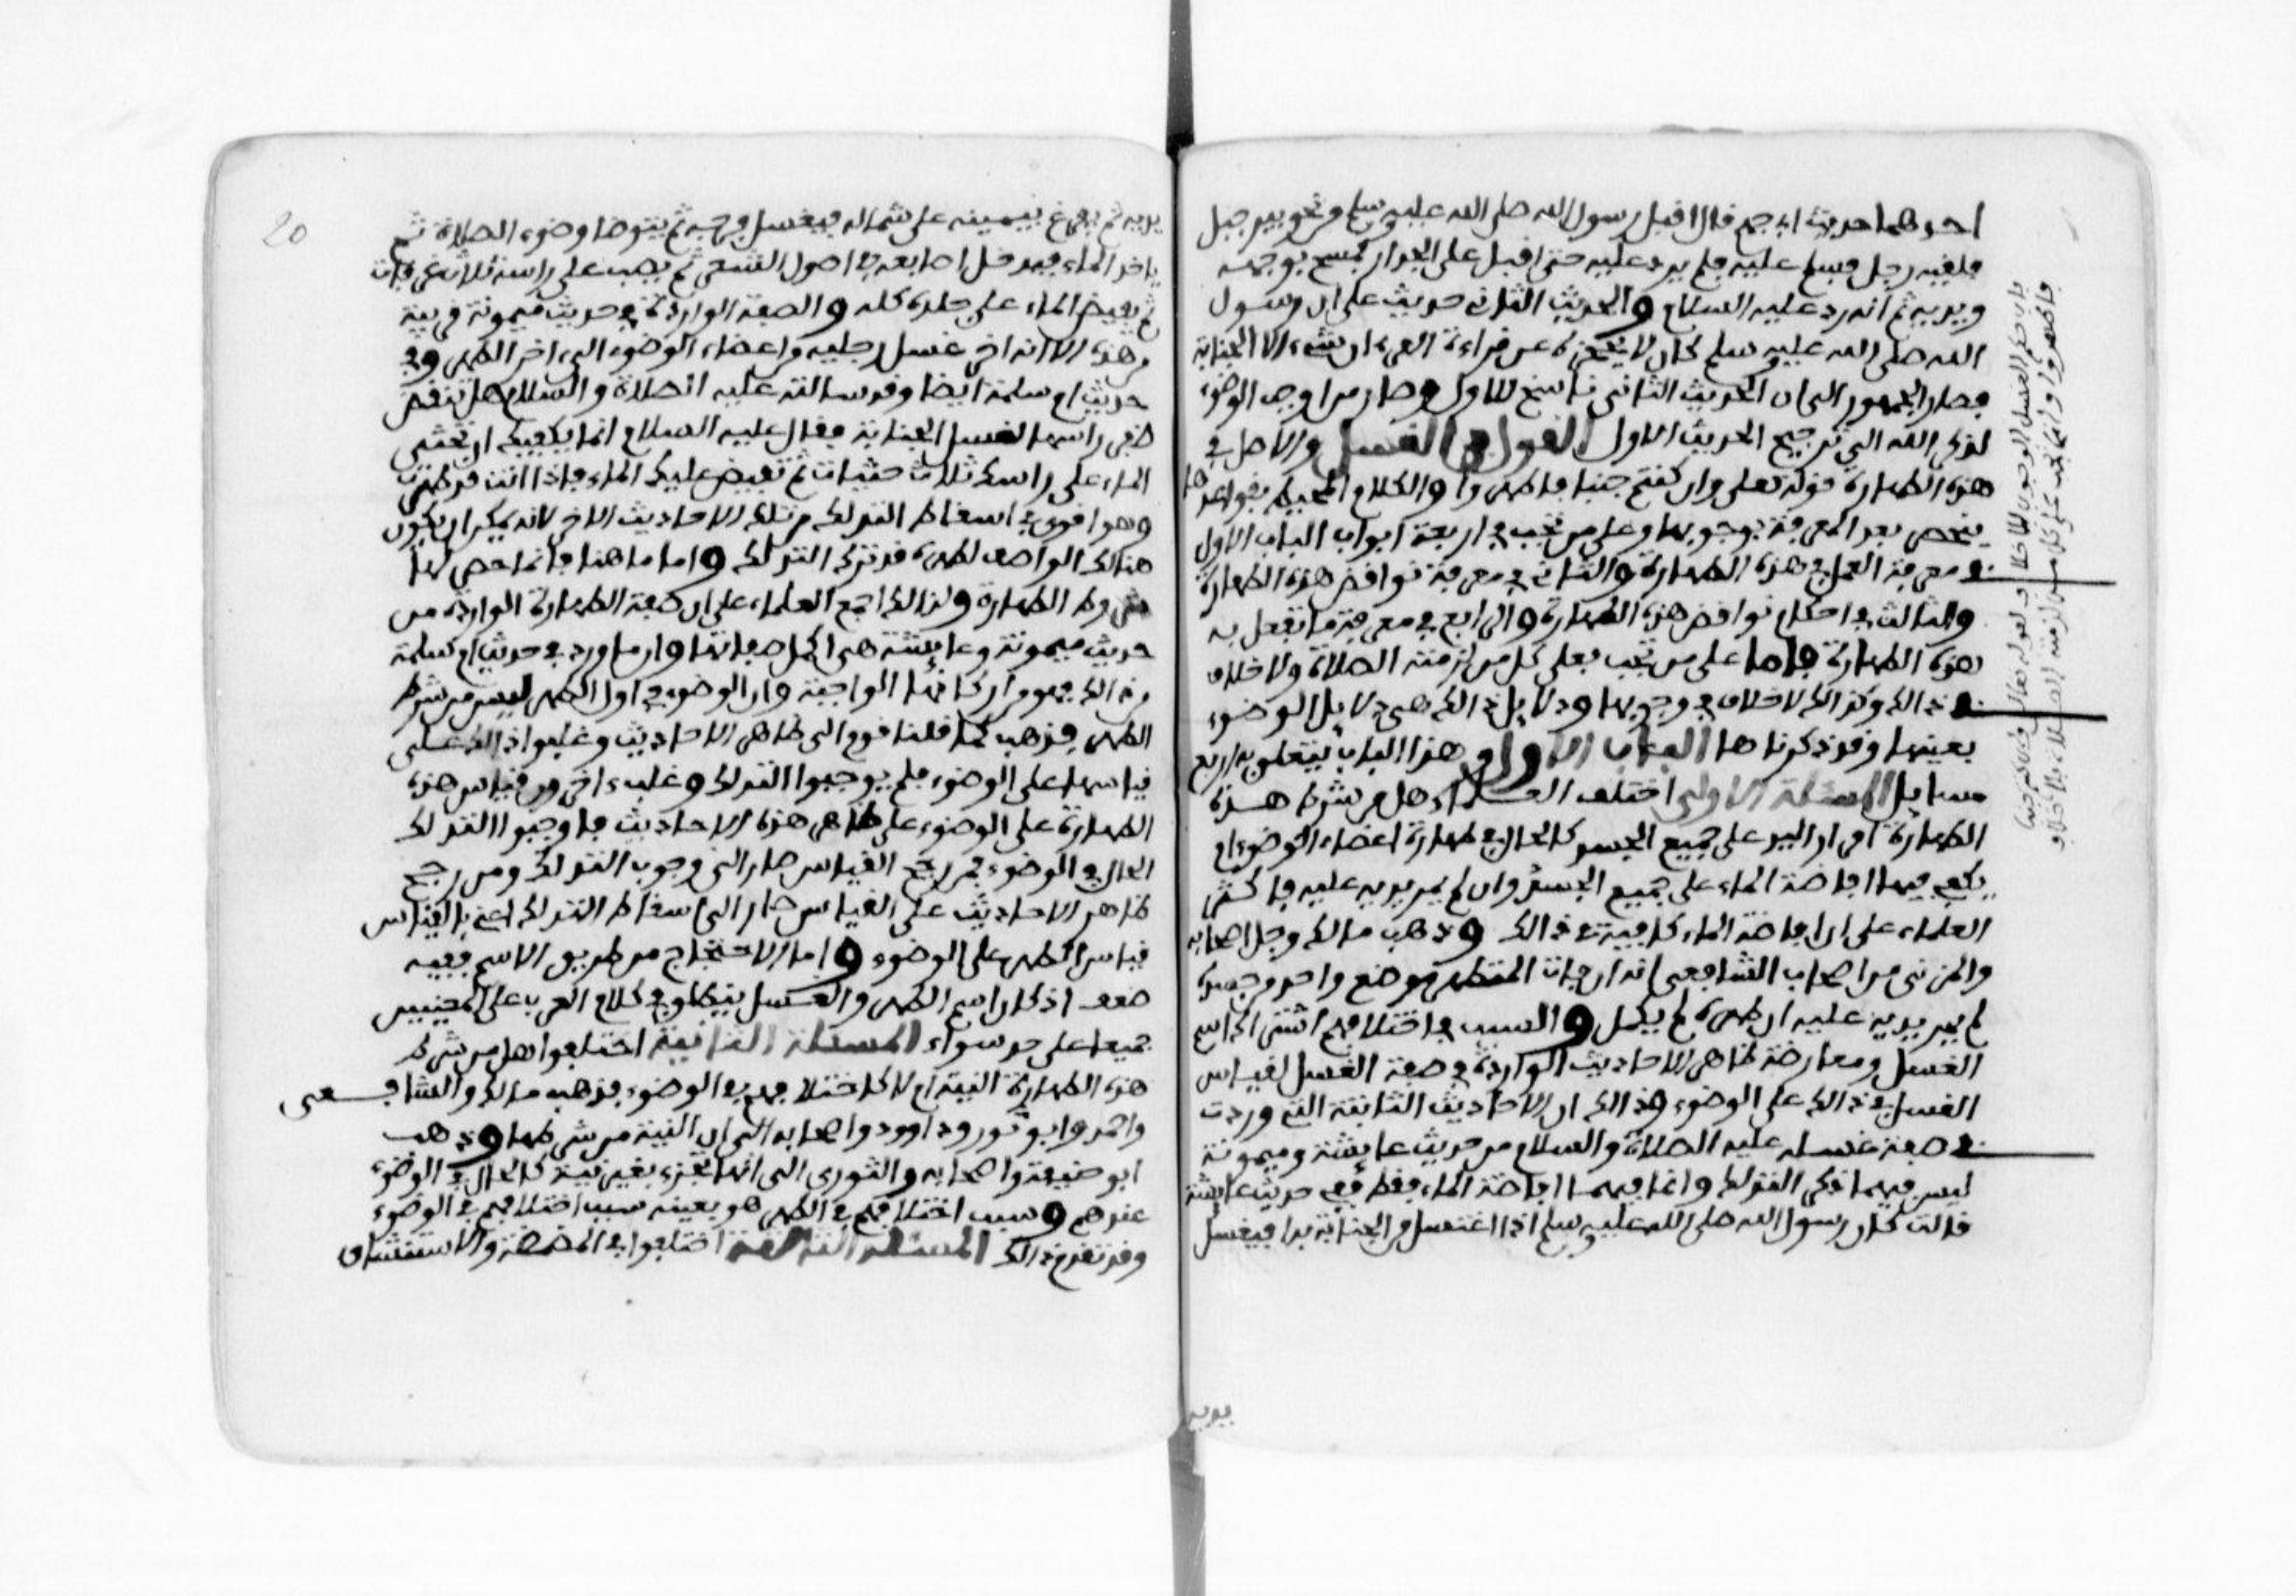 احدهما حديث ابي جهم قال اقبل رسول الله صلى الله عليه وسلم من نحو بير جمل
فلقيه رجل فسلم عليه فلم يرد عليه حتى اقبل على الجدار فمسح بوجهه
ويديه ثم انه رد عليه السلام والحديث الثاني حديث علي ان رسول
الله صلى الله عليه وسلم كان لا يحجزه عن قراءة القرءان شيء الا الجنابة
فصار الجمهور الى ان الحديث الثاني ناسخ للاول وصار من اوجب الوضوء
لذكر الله الى ترجيح الحديث الاول القول في الغسل والاصل في
هذه الطهارة قوله تعلى وان كنتم جنبا فاطهروا والكلام المحيط بقواعدها
ينحصر بعد المعرفة بوجوبها وعلى من تجب في اربعة ابواب الباب الاول
في معرفة العمل في هذه الطهارة والثاني في معرفة نواقض هذه الطهارة
والثالث في احكام نواقض هذه الطهارة والرابع في معرفة ما تفعل به
هذه الطهارة فاما على من تجب فعلى كل من لزمته الصلاة ولا خلاف
في ذالك وكذالك لا خلاف في وجوبها ودلايل ذالك هي دلايل الوضوء
بعينها وقد ذكرناها الباب الاول وهذا الباب يتعلق به اربع
مسايل المسئلة الاولى اختلف العلماء هل من شرط هذه
الطهارة امرار اليد على جميع الجسد كالحال في طهارة اعضاء الوضوء ام
يكفي فيها افاضة الماء على جميع الجسد وان لم يمر يديه عليه فاكثر
العلماء على ان افاضة الماء كافية في ذالك وذهب مالك وجل اصحابه
والمزني من اصحاب الشافعي انه ان فات المتطهر موضع واحد من جسده
لم يمر يديه عليه ان طهره لم يكمل والسبب في اختلافهم اشتراك اسم
الغسل ومعارضة ظاهر الاحاديث الواردة في صفة الغسل لقياس
الغسل في ذالك على الوضوء وذالك ان الاحاديث الثابتة التي وردت
في صفة غسله عليه الصلاة والسلام من حديث عايشة وميمونة
ليس فيهما ذكر التدلك وانما فيهما افاضة الماء فقط ففي حديث عايشة
قالت كان رسول الله صلى الله عليه وسلم اذا اغتسل من الجنابة بدا فيغسل
يديه
20
يديه ثم يفرغ بيمينه على شماله فيغسل فرجه ثم يتوضا وضوء الصلاة ثم
ياخذ الماء فيدخل اصابعه في اصول الشعر ثم يصب على راسه ثلاث غرفات
ثم يفيض الماء على جلده كله والصفة الواردة في حديث ميمونة قريبة
من هذه الا انه اخر غسل رجليه من اعضاء الوضوء الى اخر الطهر وفي
حديث ام سلمة ايضا وقد سالته عليه الصلاة والسلام هل تنقض
ضفر راسها لغسل الجنابة فقال عليه السلام انما يكفيك ان تحثي
الماء على راسك ثلاث حثيات ثم تفيض عليك الماء فاذا انت قد طهرت
وهو اقوى في اسقاط التدلك من تلك الاحاديث الاخر لانه يمكن ان يكون
هنالك الواصف لطهره قد ترك التدلك واما ما هنا فانما حصر لها
شروط الطهارة ولذالك اجمع العلماء على ان صفة الطهارة الواردة من
حديث ميمونة وعايشة هي اكمل صفاتها وان ما ورد في حديث ام سلمة
من ذالك فهو من اركانها الواجبة وان الوضوء في اول الطهر ليس من شرط
الطهر فذهب كما قلنا قوم الى ظاهر الاحاديث وغلبوا ذالك على
قياسها على الوضوء فلم يوجبوا التدلك وغلب ءاخرون قياس هذه
الطهارة على الوضوء على ظاهر هذه الاحاديث فاوجبوا التدلك
كالحال في الوضوء فمن رجح القياس صار الى وجوب التدلك ومن رجح
ظاهر الاحاديث على القياس صار الى اسقاط التدلك اعني بالقياس
قياس الطهر على الوضوء واما الاحتجاج من طريق الاسم ففيه
ضعف اذ كان اسم الطهر والغسل ينطلق في كلام العرب على المعنيين
جميعا على حد سواء المسئلة الثانية اختلفوا هل من شرط
هذه الطهارة النية ام لا كاختلافهم في الوضوء فذهب مالك والشافعي
واحمد وابو ثور وداوود واصحابه الى ان النية من شرطها وذهب
ابو حنيفة واصحابه والثوري الى انها تجزء بغير نية كالحال في الوضوء
عندهم وسبب اختلافهم في الطهر هو بعينه سبب اختلافهم في الوضوء
وقد تقدم ذالك المسئلة الثالثة اختلفوا في المضمضة والاستنشاق